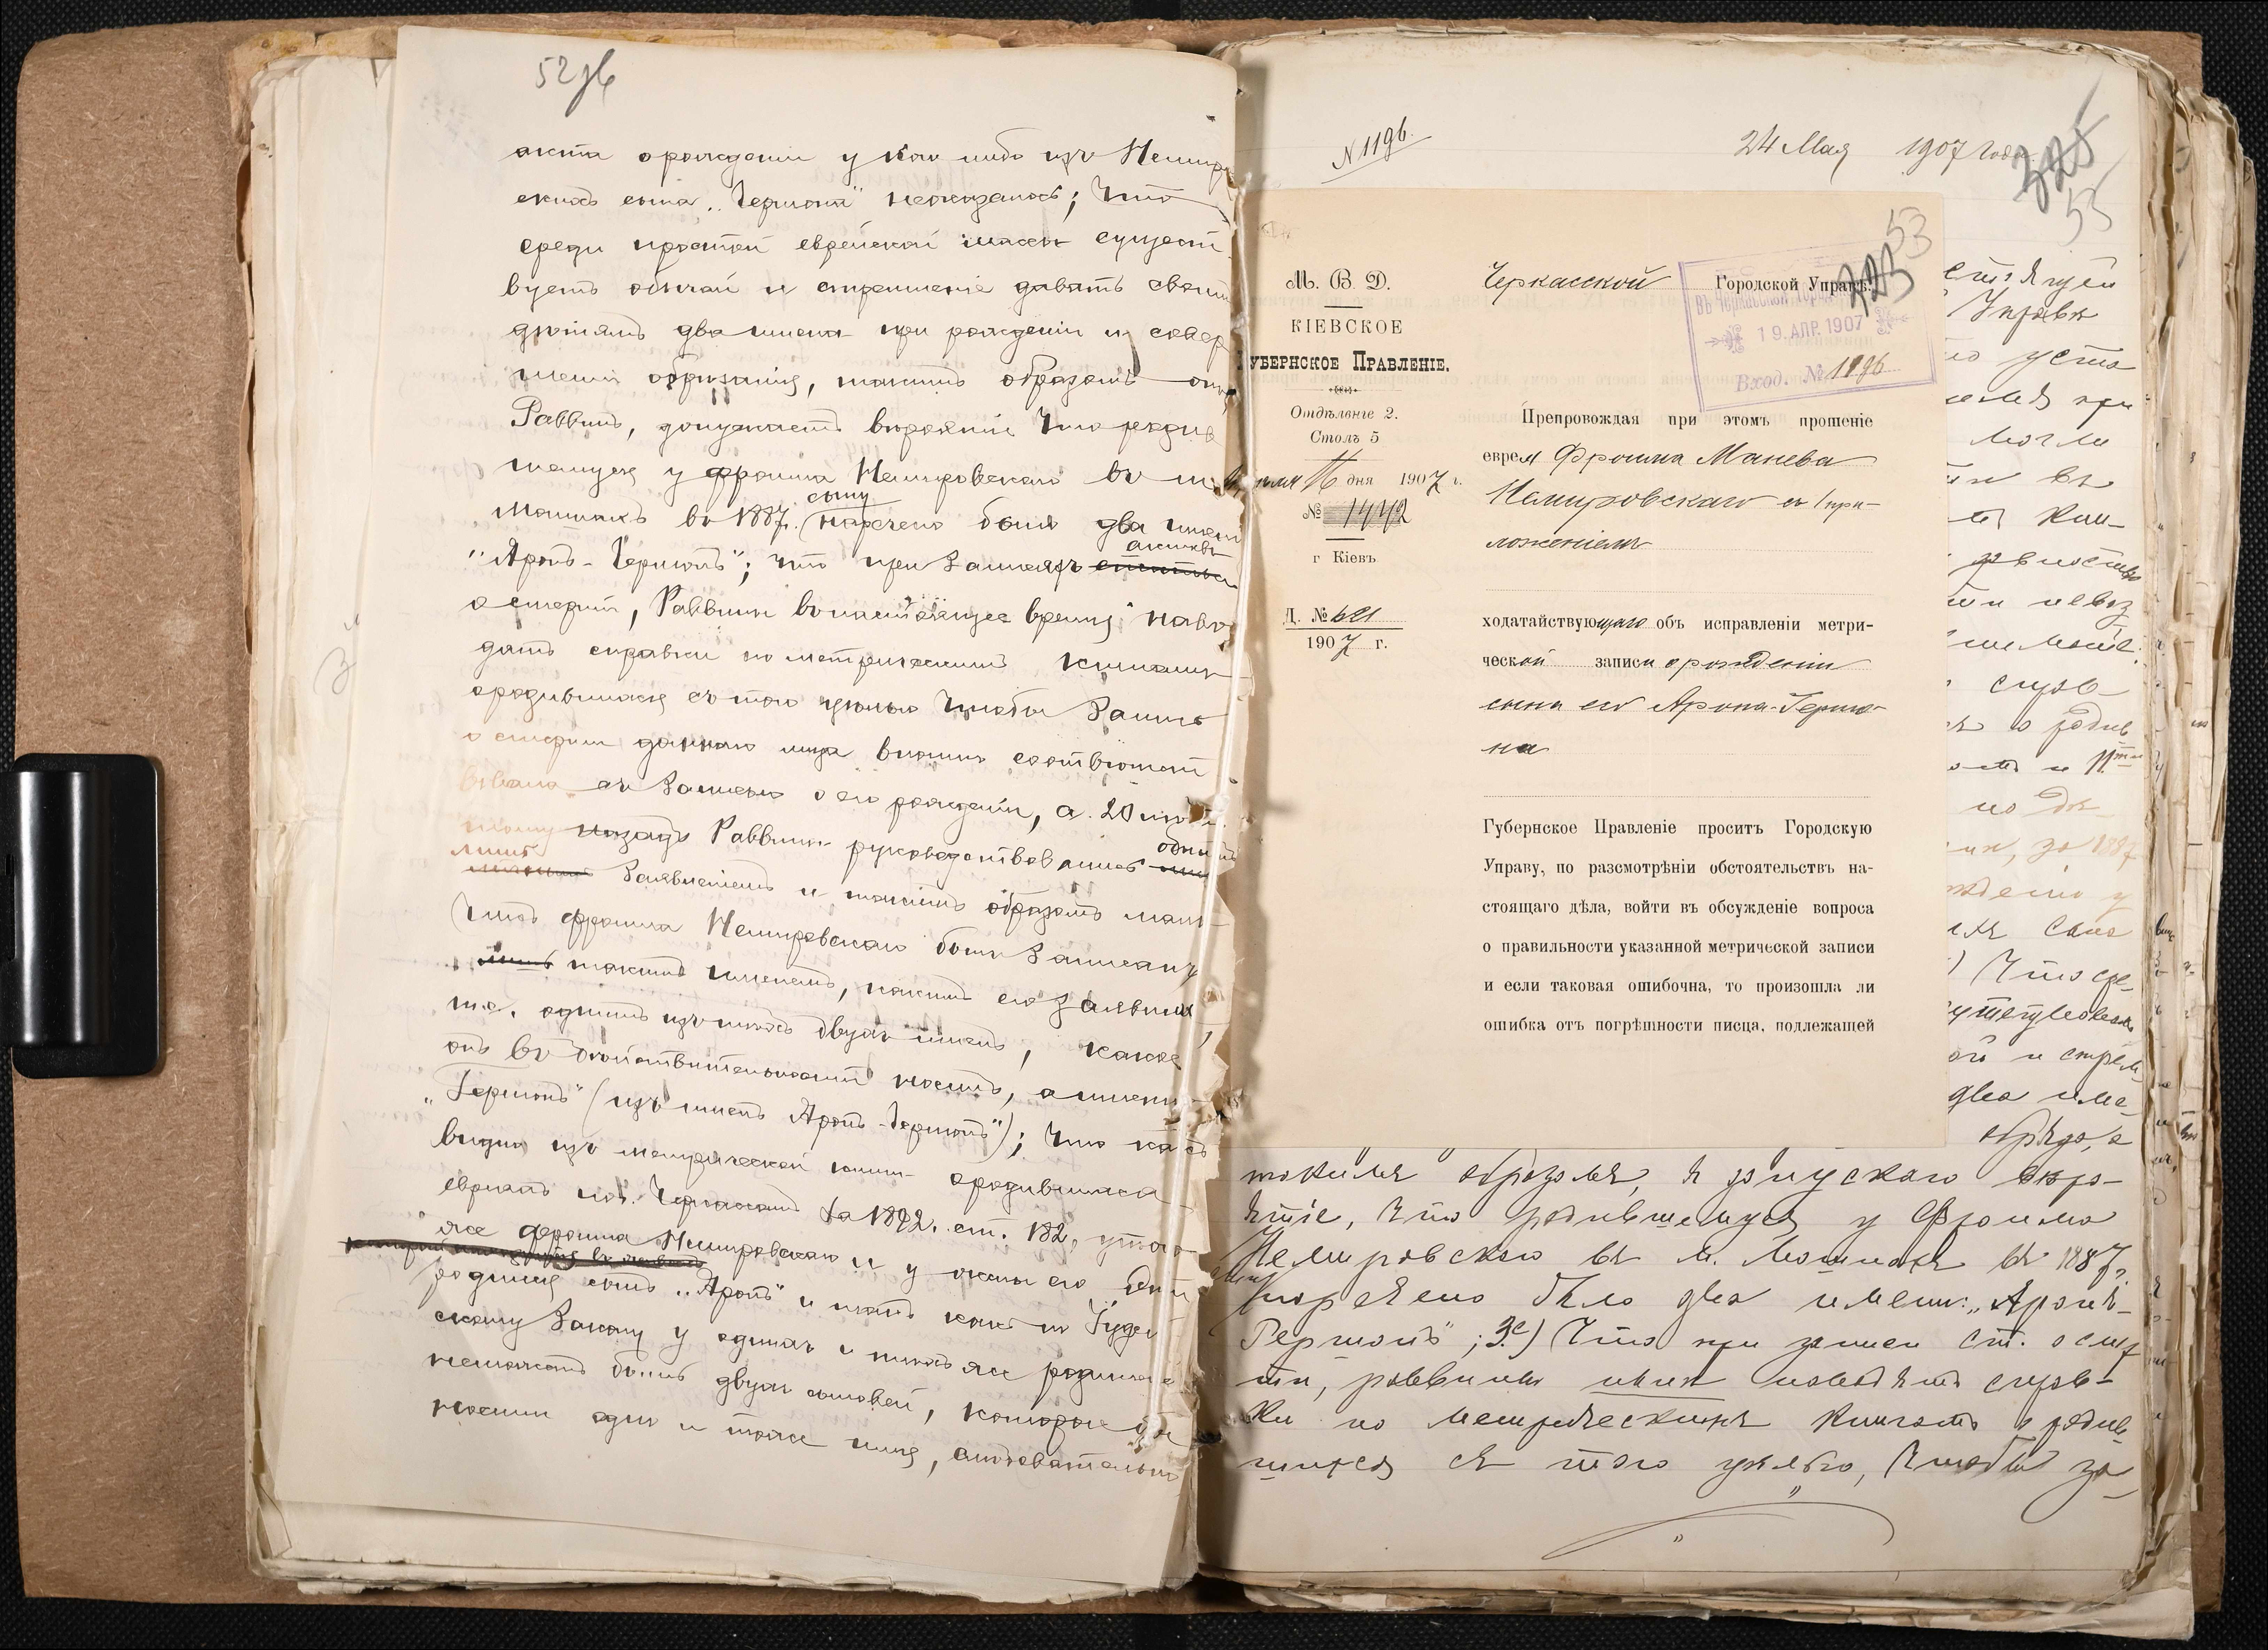 52 об
акта о рожденіи у кого либо изъ Немиро
скихъ сына „Гершона" неоказалось; что
среди простой еврейской массы сущест
вуетъ обычай и стремленіе давать своимъ
дѣтямъ два имени при рожденіи и совер
шеніи обрѣзанія, такимъ образомъ онъ,
Раввинъ, допускаетъ вѣроятіе что родив
шемуся у Фроима Немировскаго въ м.
сыну
Мошнахъ въ 1887 г. наречено было два имени
актовъ
„Аронъ-Гершонъ"; что при записяхъ
о смерти, Раввины въ настоящее время наво
дятъ справки по метрическимъ книгамъ
о родившихся съ тою цѣлью чтобы запись
о смерти даннаго лица вполнѣ соотвѣтст
вовала съ записью о его рожденіи, а 20 лѣтъ
тому назадъ Раввины руководствовались
однимъ
лишь
заявленіемъ и такимъ образомъ маль
чикъ Фроима Немировскаго былъ записанъ
лишь такимъ именемъ, какимъ его заявили
т.е. однимъ изъ тѣхъ двухъ именъ, какое
онъ въ дѣйствительности носитъ, а именно
„Гершонъ" (изъ именъ Аронъ-Гершонъ"); что какъ
видно изъ метрической книги о родившихся
евреяхъ гор. Черкассъ за 1892 г. ст. 182, у того
же Фроима Немировскаго и у жены его
родился сынъ „Аронъ" и такъ какъ по Іудей
скому Закону у однихъ и тѣхъ же родителей
неможетъ быть двухъ сыновей, которые бы
носили одно и тоже имя, слѣдовательно
N 1196.
24 Мая 1907 года.
325
55
53
223
М. В. Д.
КІЕВСКОЕ
ГУБЕРНСКОЕ ПРАВЛЕНІЕ.
Отдѣленіе 2.
Столъ 5
Апрѣля 16 дня 1907 г.
№ 1442
г Кіевъ
Д. № 621
1907 г.
Черкасской Городской Управѣ.
19 АПР. 1907
Вход. № 1196
Препровождая при этомъ прошеніе
еврея Фроима Манева
Немировскаго съ при-
ложеніемъ
ходатайствующаго объ исправленіи метри-
ческой записи о рожденіи
сына его Арона-Гершо-
на
Губернское Правленіе проситъ Городскую
Управу, по разсмотрѣніи обстоятельствъ на-
стоящаго дѣла, войти въ обсужденіе вопроса
о правильности указанной метрической записи
и если таковая ошибочна, то произошла ли
ошибка отъ погрѣшности писца, подлежащей
Управы
уста
при
могли
въ
кни-
невоз
справ-
о родив
по
за 1887
у
сына
что сре-
и стрем-
два име-
такимъ образомъ, я допускаю вѣро-
ятіе, что родившемуся у Фроима
Немировскаго въ м. Мошнахъ въ 1887 г.
сыну
наречено было два имени: „Аронъ-
Гершонъ"; 3е) Что при записи ст. о смер
ти, раввины нынѣ наводятъ справ-
ки по метрическимъ книгамъ о родив
шихся съ тою цѣлью, чтобы за-